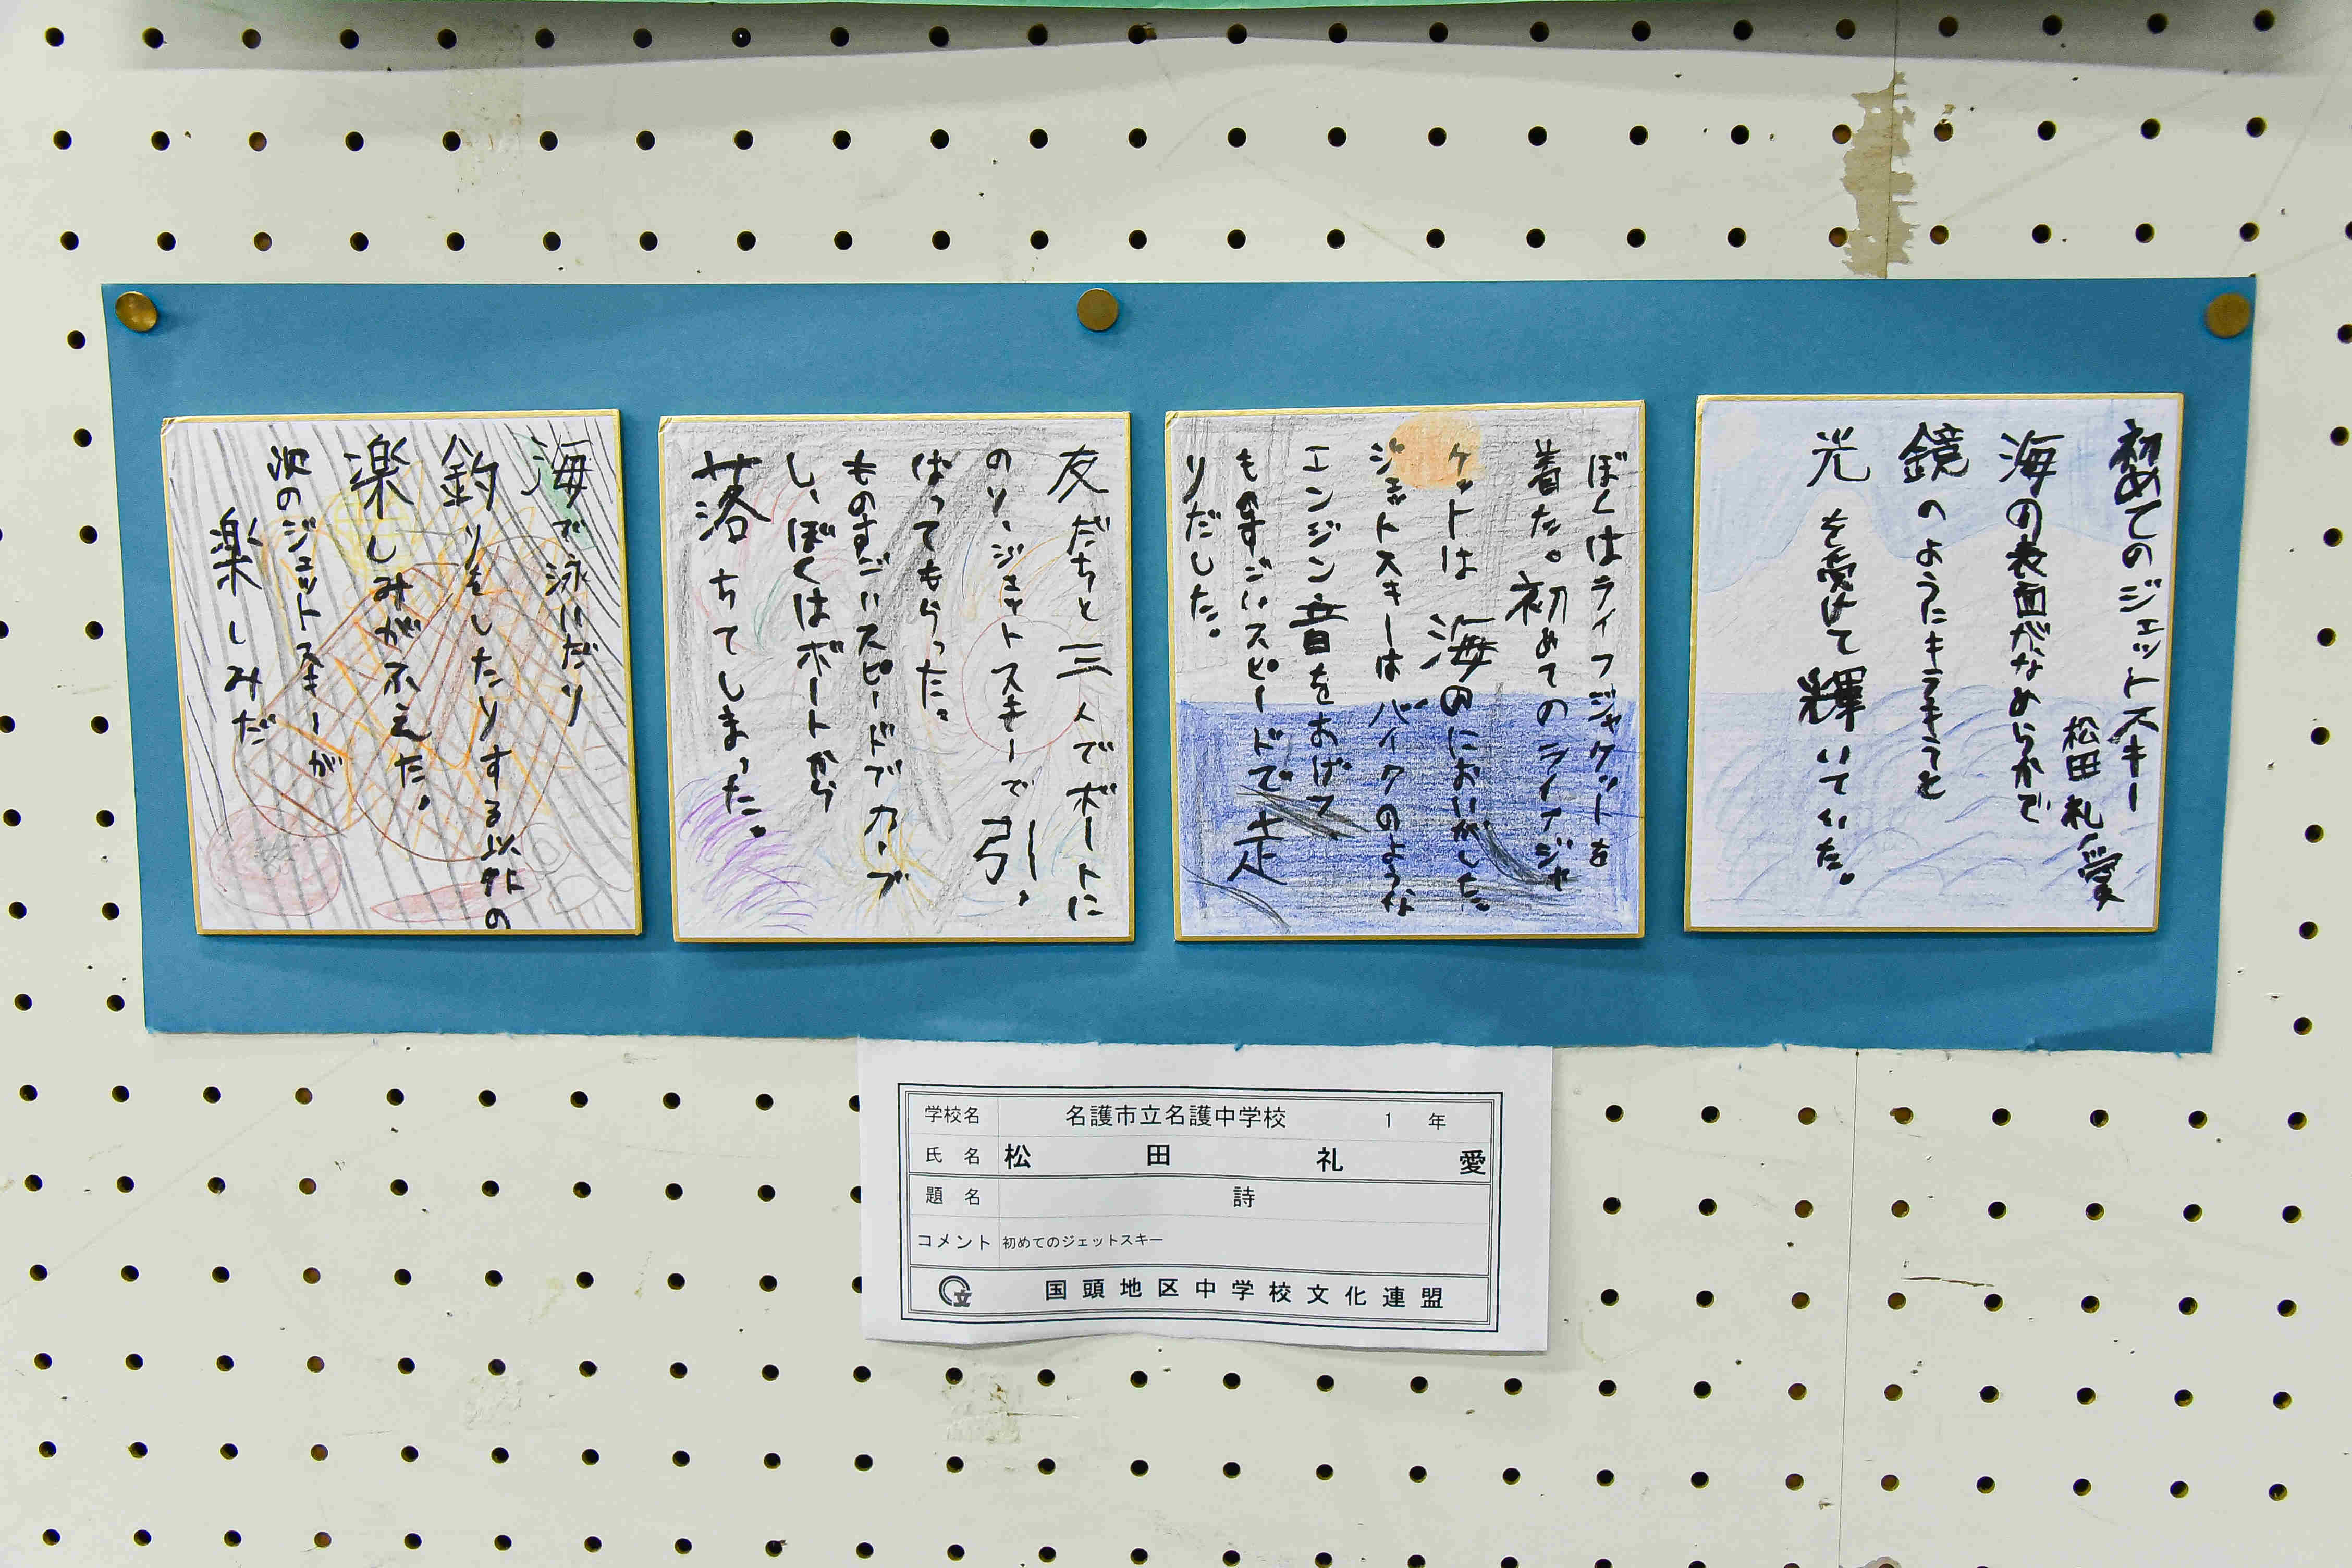 初めてのジェットスキー
松田礼愛
海の表面がなめらかで
鏡のようにキラキラと
光を受けて輝いていた。
ぼくはライフジャケットを
着た。初めてのライフジャ
ケットは海のにおいがした。
ジェットスキーはバイクのような
エンジン音をあげて、
ものすごいスピードで走
りだした。
友だちと三人でボートに
のり、ジェットスキーで引ー、
ぱってもらった。
ものすごいスピードでカーブ
し、ぼくはボートから
落ちてしまった。
海で泳いだり
釣りをしたりする以外の
楽しみが不えた。
次のジェットスキーが
楽しみだ
学校名 名護市立名護中学校 1 年
氏 名 松 田 礼 愛
題 名 詩
コメント 初めてのジェットスキー
国頭地区中学校文化連盟